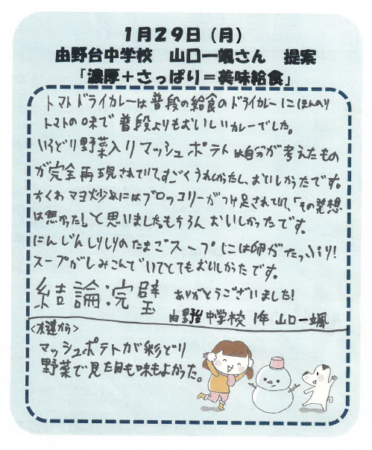 1月29日(月)
由野台中学校 山口一颯さん 提案
「濃厚+さっぱり=美味給食」
トマトドライカレーは普段の給食のドライカレーにほんのり
トマトの味で普段よりもおいしいカレーでした。
いろどり野菜入りマッシュポテトは自分が考えたもの
が完全再現されていて、すごくうれしかったし、おいしかったです。
ちくわマヨ炒めにはブロッコリーがつけ足されていて、「その発想
は無かった!」と思いました。もちろんおいしかったです。
にんじんしりしりのたまごスープには卵がたっぷり!
スープがしみこんでいてとてもおいしかったです。
結論:完璧 ありがとうございました!
由野台中学校 1年 山口一颯
マッシュポテトが彩どり
野菜で見た目も味もよかった。